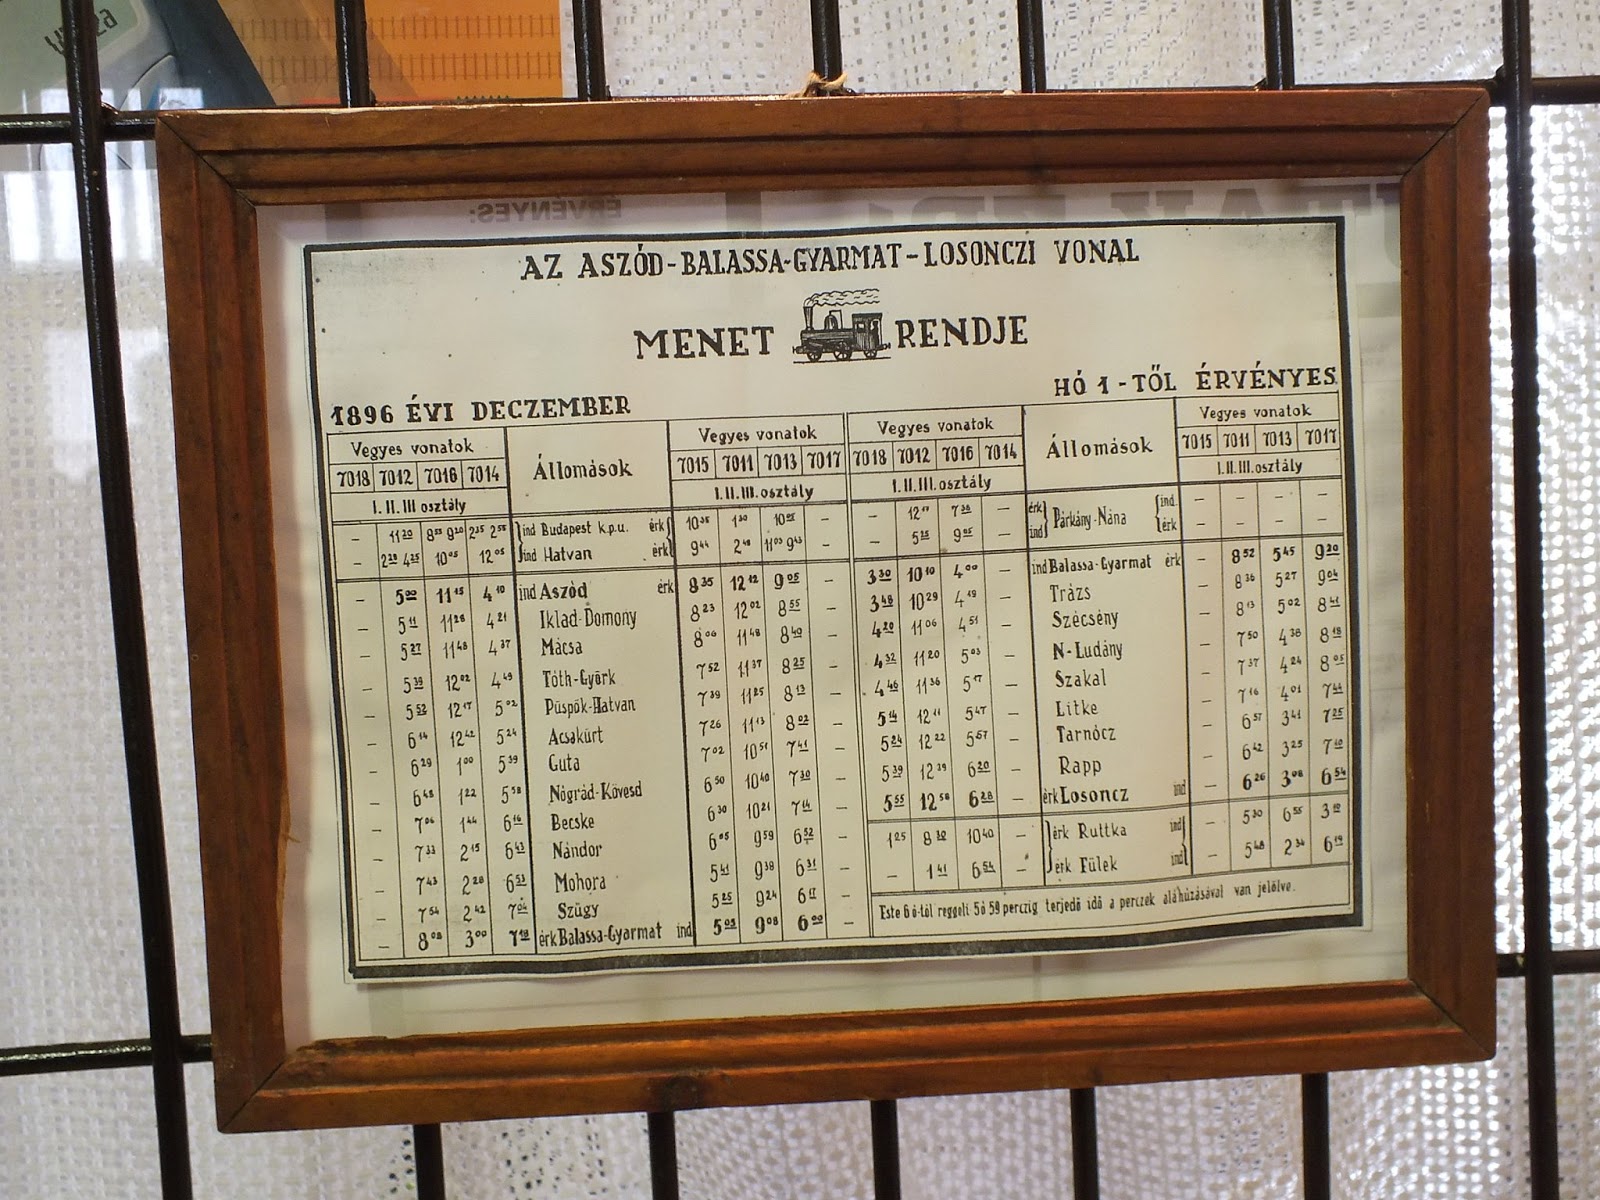 ÉRVÉNYES:
AZ ASZÓD-BALASSA-GYARMAT-LOSONCZI VONAL
MENET RENDJE
1896 ÉVI DECZEMBER HÓ 1-TŐL ÉRVÉNYES
Vegyes vonatok Állomások Vegyes vonatok Vegyes vonatok Állomások Vegyes vonatok
7018 7012 7016 7014 7015 7011 7013 7017 7018 7012 7016 7014 7015 7011 7013 7017
I. II. III osztály I. II. III. osztály I. II. III. osztály I. II. III. osztály
- 11 20 8 55 9 20 2 35 2 55 ind Budapest k.p.u. érk 10 35 1 30 10 05 -
- 2 28 4 25 10 05 12 05 ind Hatvan érk 9 44 2 48 11 03 9 43 -
- 5 00 11 15 4 10 ind Aszód érk 8 35 12 12 9 05 -
- 5 11 11 26 4 21 Iklad-Domony 8 23 12 02 8 55
- 5 27 11 48 4 37 Mácsa 8 06 11 48 8 40
- 5 39 12 02 4 49 Tóth-Györk 7 52 11 37 8 25
- 5 53 12 17 5 02 Püspök-Hatvan 7 39 11 25 8 13
- 6 14 12 42 5 24 Acsakürt 7 26 11 13 8 02
- 6 29 1 00 5 39 Guta 7 02 10 51 7 41
- 6 48 1 22 5 58 Nógrád-Kövesd 6 50 10 40 7 30
- 7 04 1 44 6 16 Becske 6 30 10 21 7 14
- 7 33 2 15 6 43 Nándor 6 05 9 59 6 52
- 7 43 2 28 6 53 Mohora 5 41 9 38 6 31
- 7 54 2 42 7 04 Szügy 5 25 9 24 6 17
- 8 08 3 00 7 18 érk Balassa-Gyarmat ind 5 05 9 08 6 00 -
- 12 7 38 - érk Párkány-Nána ind - - - -
- 5 25 9 05 - ind érk - - - -
3 30 10 10 4 00 - ind Balassa-Gyarmat érk - 8 52 5 45 9 20
3 48 10 29 4 19 - Trázs - 8 36 5 27 9 04
4 20 11 06 4 51 - Szécsény - 8 13 5 02 8 41
4 32 11 20 5 03 - N-Ludány - 7 50 4 38 8 18
4 46 11 36 5 17 - Szakal - 7 37 4 24 8 05
5 14 12 11 5 47 - Litke - 7 16 4 01 7 44
5 24 12 22 5 57 - Tarnócz - 6 57 3 41 7 25
5 39 12 39 6 20 - Rapp - 6 42 3 25 7 10
5 55 12 58 6 28 - érk Losoncz ind - 6 26 3 08 6 54
1 25 8 30 10 40 - érk Ruttka ind - 5 30 6 55 3 10
- 1 41 6 54 - érk Fülek ind - 5 48 2 34 6 19
Este 6 ó-tól reggeli 5 ó 59 perczig terjedő idő a perczek aláhúzásával van jelölve.